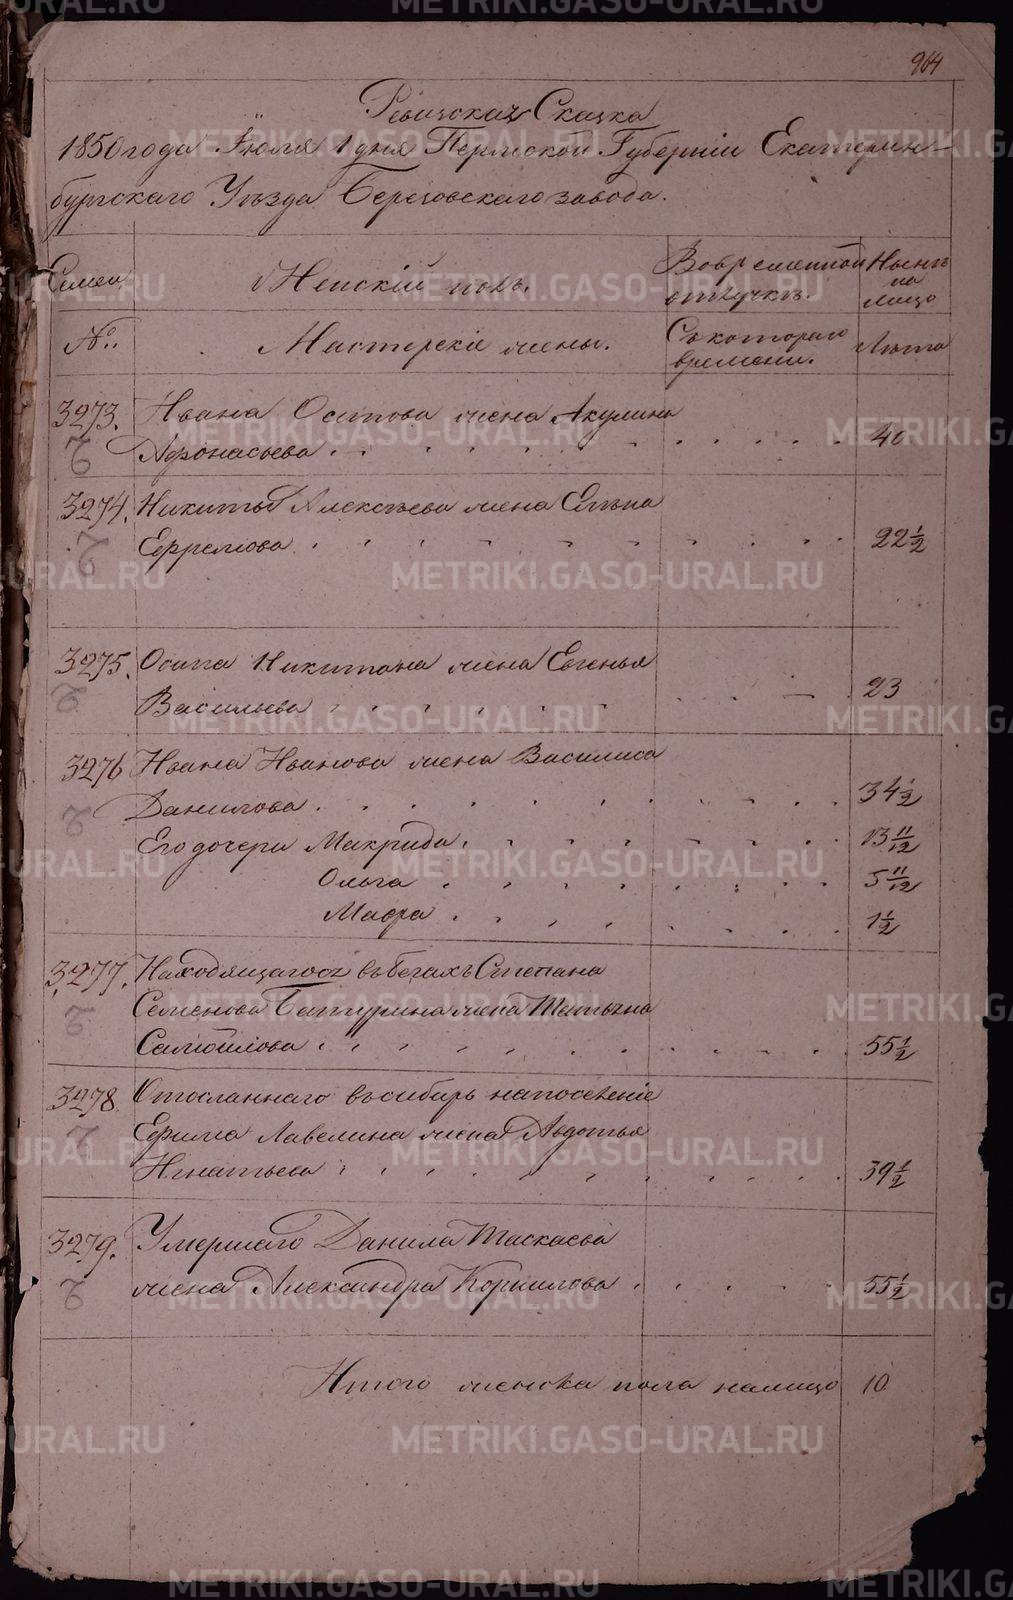 964
Ревизская Сказка
1850 года Июля 1 дня Пермской Губернiи Екатерин-
бургскаго Уѣзда Березовскаго завода.
Семеи
Женскiй полъ.
Во временной
отлучкѣ.
Нынѣ
на
лицо
№.
Мастерскiе жены.
Съ котораго
времени.
Лѣта
3273. Ивана Осипова жена Акулина
Афонасьева 40
3274. Никиты Алексѣева жена Елѣна
Ефремова 22 1/2
3275. Осипа Никитина жена Евгенья
Васильева 23
3276 Ивана Иванова жена Василиса
Данилова 34 1/2
Его дочери Макрида 13 11/12
Ольга 5 11/12
Мавра 1 1/2
3277. Находящагось въ бегахъ Степана
Семенова Батурина жена Татьяна
Самойлова 55 1/2
3278 Отосланнаго въ сибирь на поселенiе
Ефима Лавелина жена Авдотья
Игнатьева 39 1/2
3279. Умершаго Данила Таскаева
жена Александра Корнилова 55 1/2
Итого женска пола налицо 10
METRIKI.GASO-URAL.RU